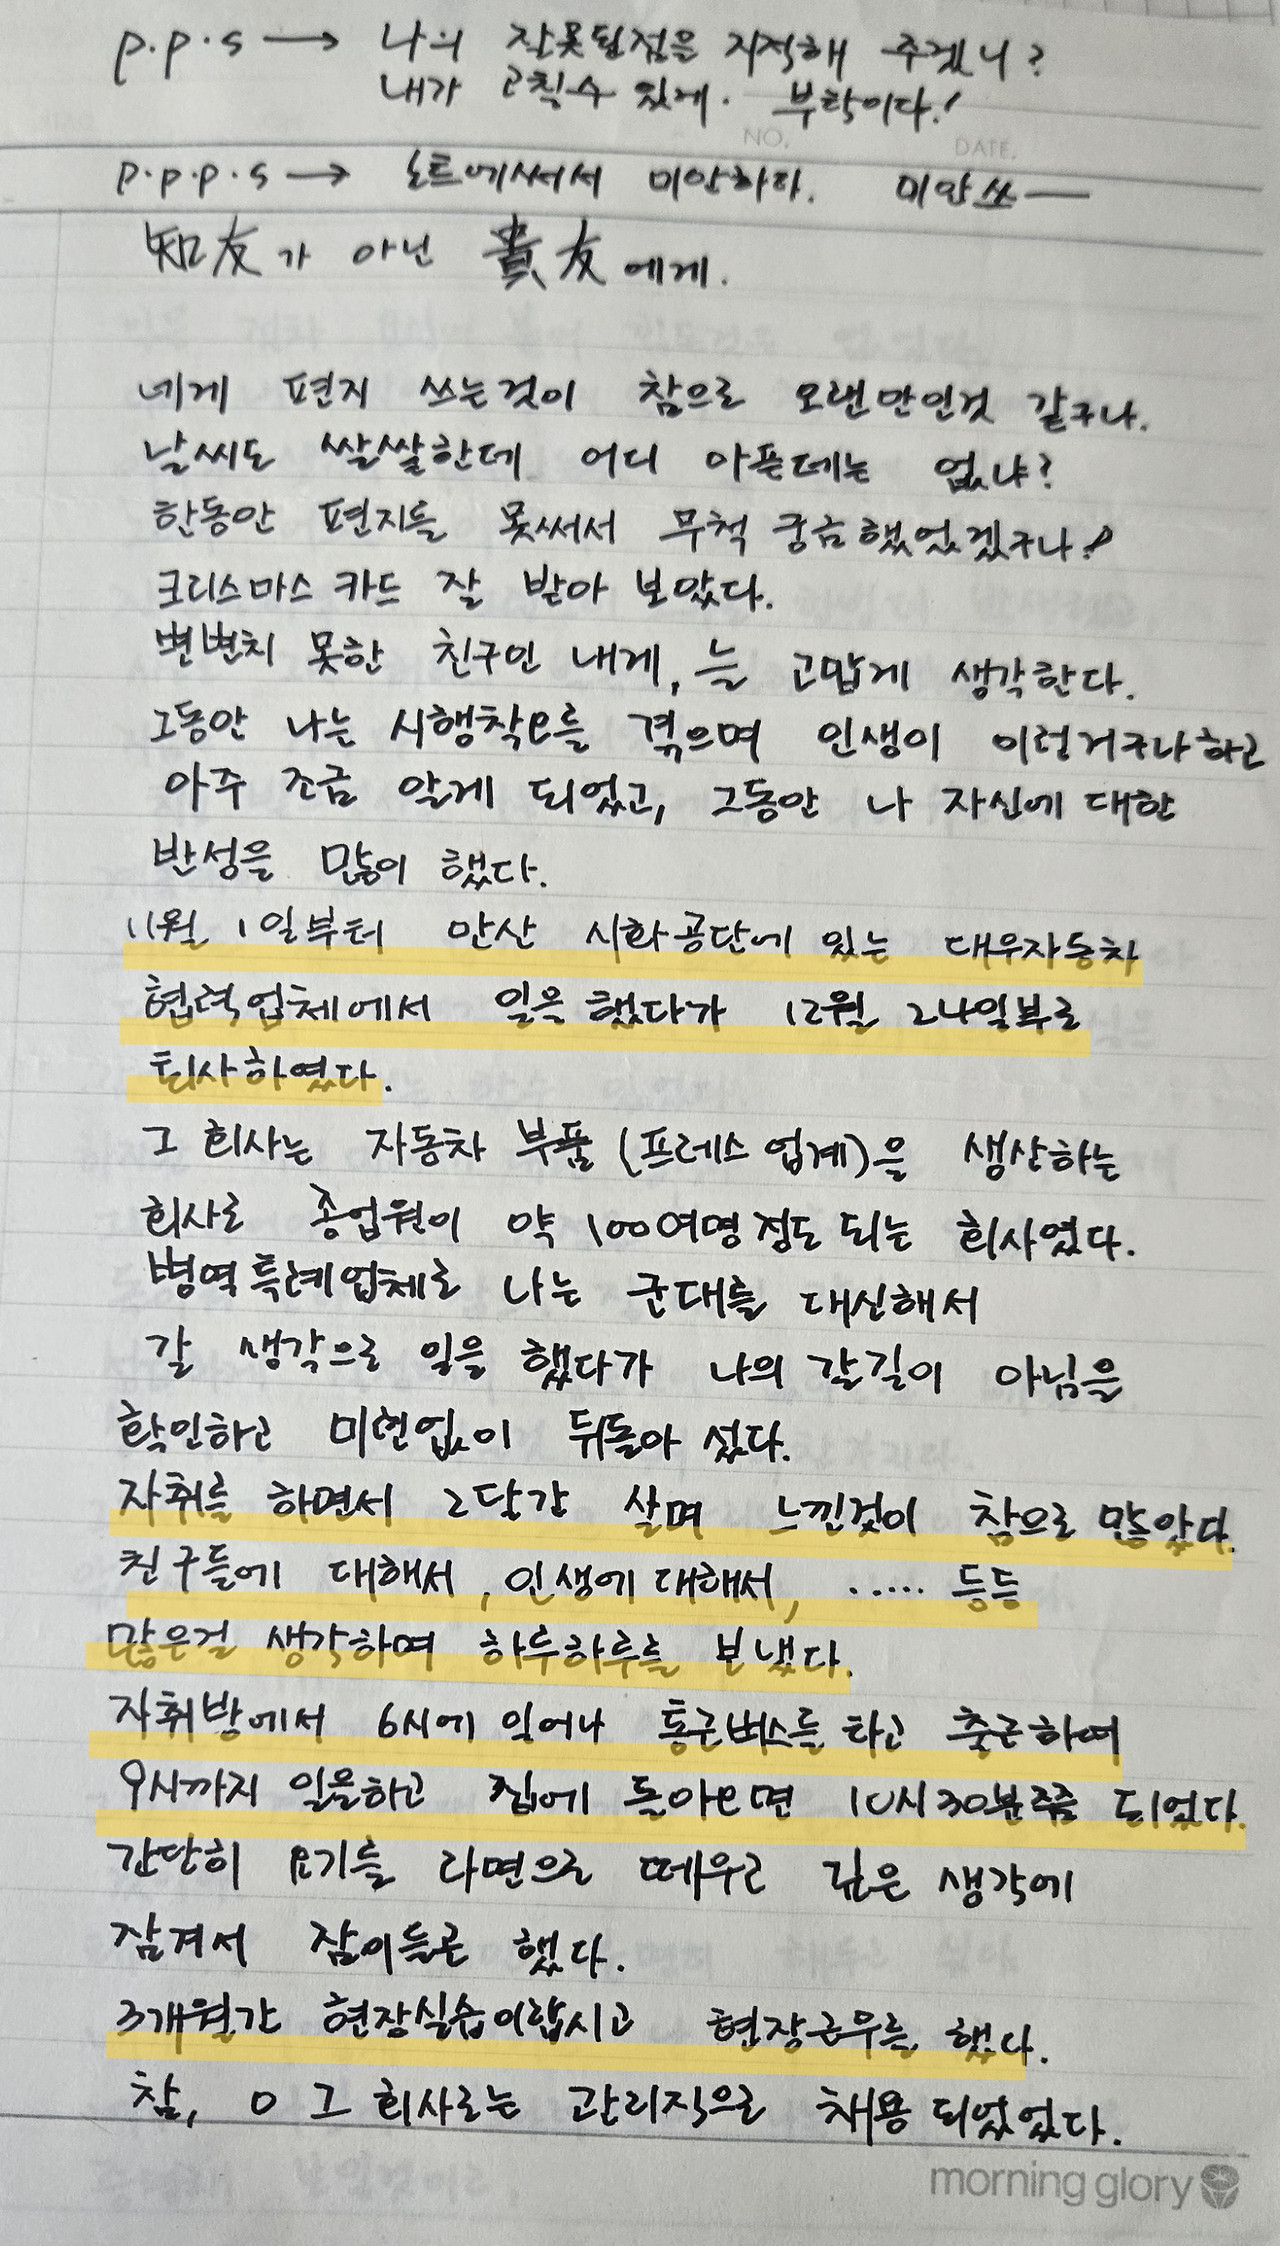 p.p.s → 나의 잘못된점을 지적해 주겠니?
내가 고칠수 있게. 부탁이다!
NO.
DATE.
p.p.p.s → 노트에써서 미안하다. 미안쓰—
知友가 아닌 貴友에게.
네게 편지 쓰는것이 참으로 오랜만인것 같구나.
날씨도 쌀쌀한데 어디 아픈데는 없냐?
한동안 편지를 못써서 무척 궁금했었겠구나!
크리스마스 카드 잘 받아 보았다.
변변치 못한 친구인 내게, 늘 고맙게 생각한다.
그동안 나는 시행착오를 겪으며 인생이 이런거구나하고
아주 조금 알게 되었고, 그동안 나 자신에 대한
반성을 많이 했다.
11월 1일부터 안산 시화공단에 있는 대우자동차
협력업체에서 일을 했다가 12월 24일부로
퇴사하였다.
그 회사는 자동차 부품(프레스 업계)을 생산하는
회사로 종업원이 약 100여명정도 되는 회사였다.
병역특례업체로 나는 군대를 대신해서
갈 생각으로 일을 했다가 나의 갈길이 아님을
확인하고 미련없이 뒤돌아 섰다.
자취를 하면서 2달간 살며 느낀것이 참으로 많았다.
친구들에 대해서, 인생에 대해서, ..... 등등
많은걸 생각하며 하루하루를 보냈다.
자취방에서 6시에 일어나 통근버스를 타고 출근하여
9시까지 일을하고 집에 돌아오면 10시30분쯤 되었다.
간단히 요기를 라면으로 떼우고 깊은 생각에
잠겨서 잠이들곤 했다.
3개월간 현장실습이랍시고 현장근무를 했다.
참, 그 회사로는 관리직으로 채용 되었었다.
morning glory